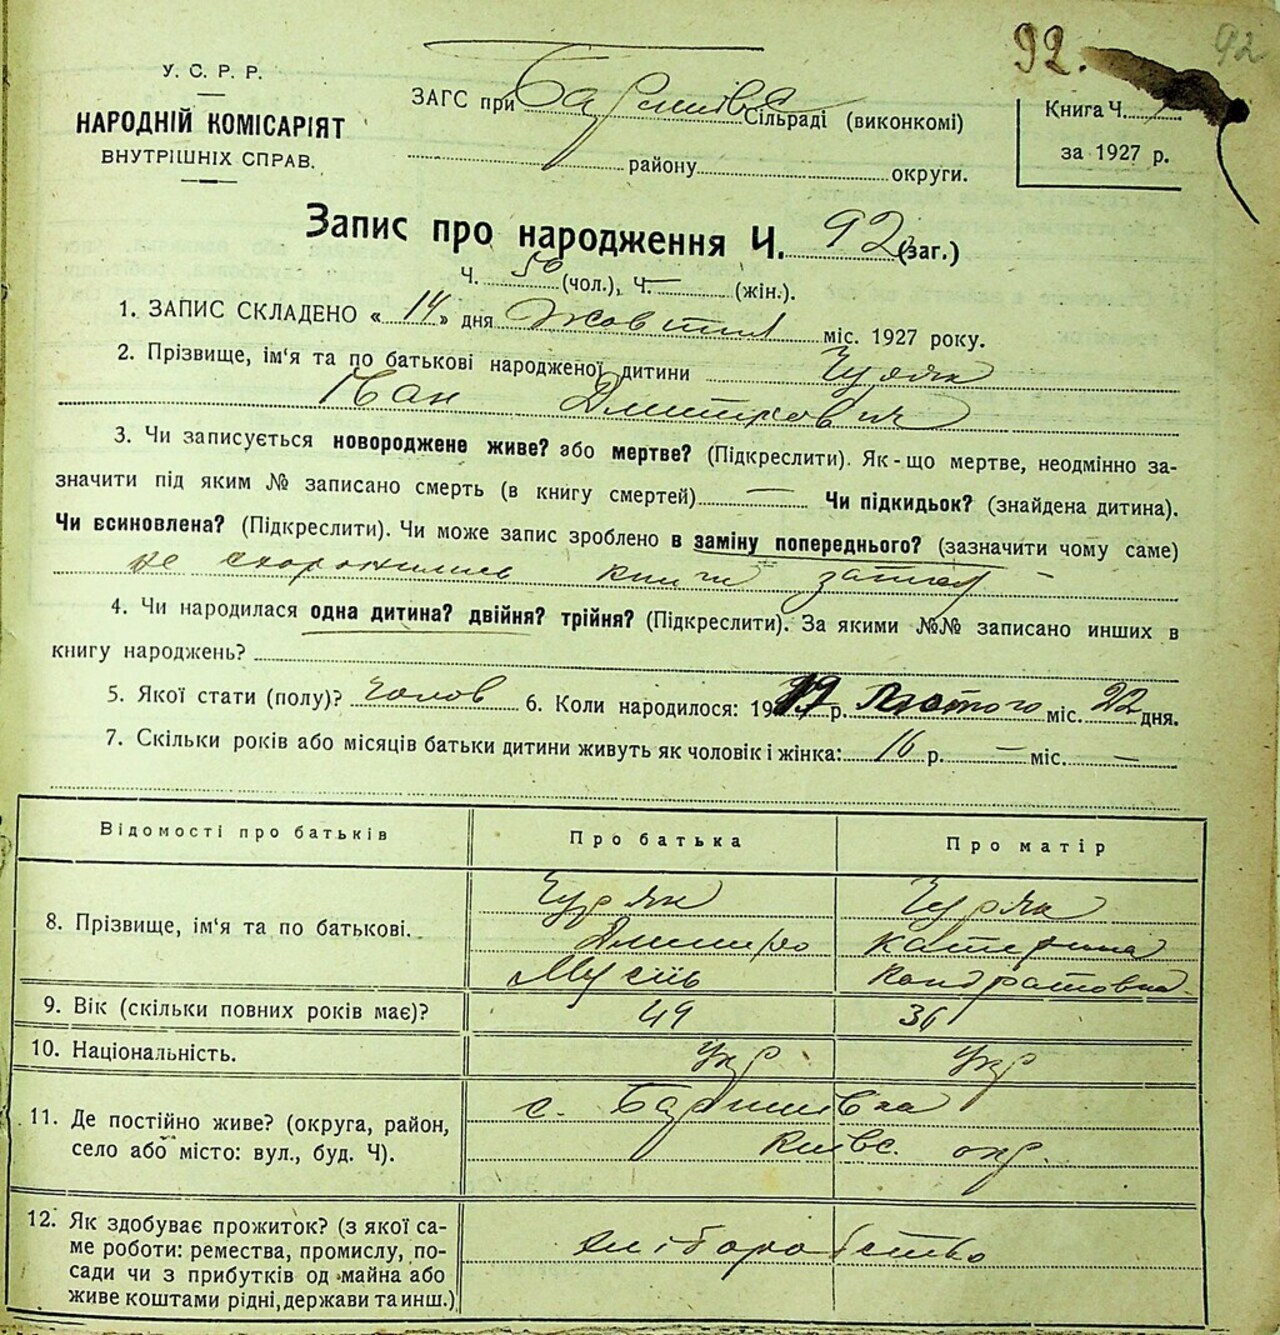 92. 92
У. С. Р. Р.
НАРОДНІЙ КОМІСАРІЯТ
ВНУТРІШНІХ СПРАВ.
ЗАГС при Баришівс Сільраді (виконкомі)
району округи.
Книга Ч.
за 1927 р.
Запис про народження Ч. 92 (заг.)
Ч. 50 (чол.), Ч. — (жін.).
1. ЗАПИС СКЛАДЕНО « 14 » дня Жовтня міс. 1927 року.
2. Прізвище, ім'я та по батькові народженої дитини
Іван Дмитрович
3. Чи записується новороджене живе? або мертве? (Підкреслити). Як-що мертве, неодмінно за-
значити під яким № записано смерть (в книгу смертей) — Чи підкидьок? (знайдена дитина).
Чи всиновлена? (Підкреслити). Чи може запис зроблено в заміну попереднього? (зазначити чому саме)
не схоронились книги
4. Чи народилася одна дитина? двійня? трійня? (Підкреслити). За якими №№ записано инших в
книгу народжень?
5. Якої стати (полу)? чолов 6. Коли народилося: 19 р. Лютого міс. 22 дня.
7. Скільки років або місяців батьки дитини живуть як чоловік і жінка: 16 р. — міс. —
Відомості про батьків Про батька Про матір
8. Прізвище, ім'я та по батькові. Чуряк Чуряк
Дмитро Катерина
Мусіїв Кондратовна
9. Вік (скільки повних років має)? 49 36
10. Національність. Укр Укр
11. Де постійно живе? (округа, район, с. Баришівка
село або місто: вул., буд. Ч). Київс. окр.
12. Як здобуває прожиток? (з якої са-
ме роботи: ремества, промислу, по- хліборобство
сади чи з прибутків од майна або
живе коштами рідні, держави та инш.)